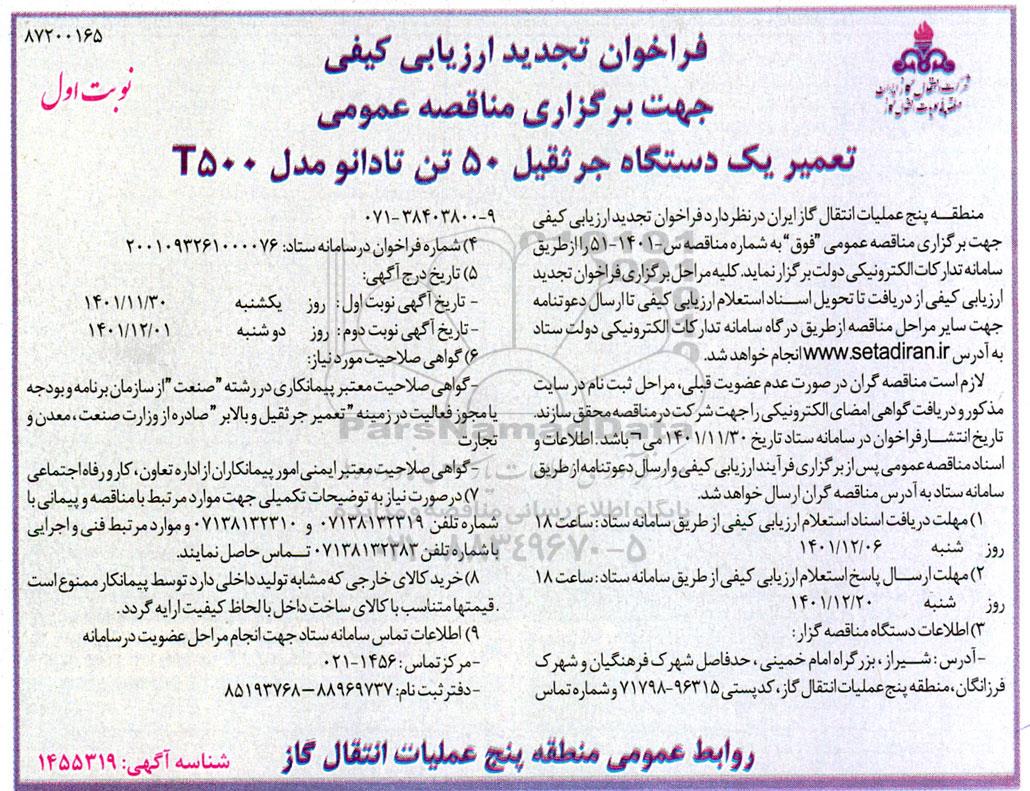 ۸۷۲۰۰۱۶۵
نوبت اول
شرکت انتقال گاز ایران
فراخوان تجدید ارزیابی کیفی
جهت برگزاری مناقصه عمومی
تعمیر یک دستگاه جرثقیل ۵۰ تن تادانو مدل T۵۰۰
منطقه پنج عملیات انتقال گاز ایران در نظر دارد فراخوان تجدید ارزیابی کیفی
جهت برگزاری مناقصه عمومی "فوق" به شماره مناقصه س-۱۴۰۱-۵۱ را از طریق
سامانه تدارکات الکترونیکی دولت برگزار نماید. کلیه مراحل برگزاری فراخوان تجدید
ارزیابی کیفی از دریافت تا تحویل اسناد استعلام ارزیابی کیفی تا ارسال دعوتنامه
جهت سایر مراحل مناقصه از طریق درگاه سامانه تدارکات الکترونیکی دولت ستاد
به آدرس www.setadiran.ir انجام خواهد شد.
لازم است مناقصه گران در صورت عدم عضویت قبلی، مراحل ثبت نام در سایت
مذکور و دریافت گواهی امضای الکترونیکی را جهت شرکت در مناقصه محقق سازند.
تاریخ انتشار فراخوان در سامانه ستاد تاریخ ۱۴۰۱/۱۱/۳۰ می¬ باشد. اطلاعات و
اسناد مناقصه عمومی پس از برگزاری فرآیند ارزیابی کیفی و ارسال دعوتنامه از طریق
سامانه ستاد به آدرس مناقصه گران ارسال خواهد شد.
۱) مهلت دریافت اسناد استعلام ارزیابی کیفی از طریق سامانه ستاد: ساعت ۱۸
روز شنبه ۱۴۰۱/۱۲/۰۶
۲) مهلت ارسال پاسخ استعلام ارزیابی کیفی از طریق سامانه ستاد: ساعت ۱۸
روز شنبه ۱۴۰۱/۱۲/۲۰
۳) اطلاعات دستگاه مناقصه گزار:
-آدرس: شیراز، بزرگراه امام خمینی، حدفاصل شهرک فرهنگیان و شهرک
فرزانگان، منطقه پنج عملیات انتقال گاز، کدپستی ۹۶۳۱۵-۷۱۷۹۸ و شماره تماس
۰۷۱-۳۸۴۰۳۸۰۰-۹
۴) شماره فراخوان در سامانه ستاد: ۲۰۰۱۰۹۳۲۶۱۰۰۰۰۷۶
۵) تاریخ درج آگهی:
- تاریخ آگهی نوبت اول: روز یکشنبه ۱۴۰۱/۱۱/۳۰
-تاریخ آگهی نوبت دوم: روز دوشنبه ۱۴۰۱/۱۲/۰۱
۶) گواهی صلاحیت مورد نیاز:
-گواهی صلاحیت معتبر پیمانکاری در رشته "صنعت" از سازمان برنامه و بودجه
یا مجوز فعالیت در زمینه "تعمیر جرثقیل و بالابر" صادره از وزارت صنعت، معدن و
تجارت
-گواهی صلاحیت معتبر ایمنی امور پیمانکاران از اداره تعاون، کار و رفاه اجتماعی
۷) در صورت نیاز به توضیحات تکمیلی جهت موارد مرتبط با مناقصه و پیمانی با
شماره تلفن ۰۷۱۳۸۱۳۲۳۱۹ و ۰۷۱۳۸۱۳۲۳۱۰ و موارد مرتبط فنی و اجرایی
با شماره تلفن ۰۷۱۳۸۱۳۲۳۸۲ تماس حاصل نمایند.
۸) خرید کالای خارجی که مشابه تولید داخلی دارد توسط پیمانکار ممنوع است
.قیمتها متناسب با کالای ساخت داخل با لحاظ کیفیت ارایه گردد.
۹) اطلاعات تماس سامانه ستاد جهت انجام مراحل عضویت در سامانه
-مرکز تماس: ۱۴۵۶-۰۲۱
-دفتر ثبت نام: ۸۸۹۶۹۷۳۷ – ۸۵۱۹۳۷۶۸
روابط عمومی منطقه پنج عملیات انتقال گاز
شناسه آگهی: ۱۴۵۵۳۱۹
ParsNamadData
پایگاه اطلاع رسانی مناقصه و مزایده
۰۲۱-۸۸۳۴۹۶۷۰-۵